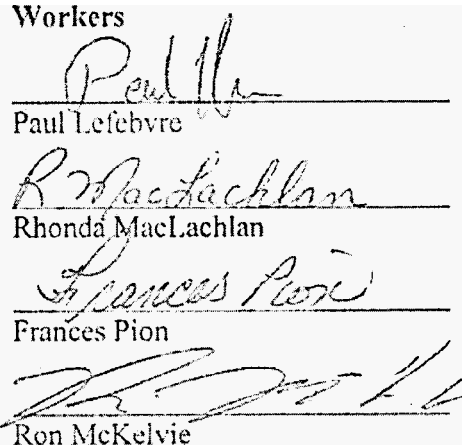 Workers
Paul
Paul Lefebvre
R MacLachlan
Rhonda MacLachlan
Frances Pion
Frances Pion
Ron McKelvie